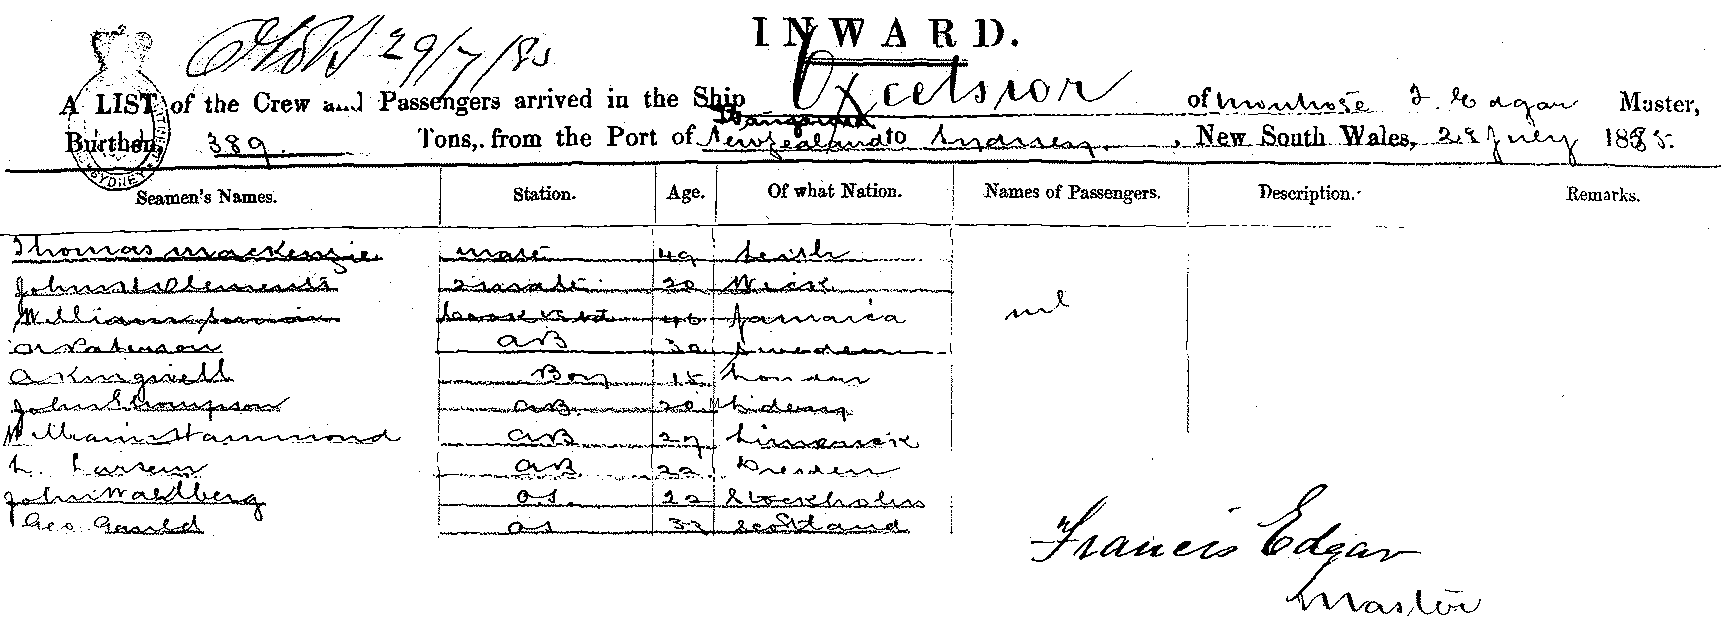 29/7/85
INWARD.
A LIST of the Crew and Passengers arrived in the Ship Excelsior of Montrose F. Edgar Master,
Burthen, 389 Tons, from the Port of Wanganui New Zealand to Sydney, New South Wales, 28 July 1885.
SYDNEY
Seamen's Names. Station. Age. Of what Nation. Names of Passengers. Description. Remarks.
Thomas MacKenzie mate 49 Leith
John Clements 2 mate 20 Wick
William Cook 46 Jamaica nil
A Paterson AB 30 Sweden
A Kingwell Boy 15 London
John Thompson AB 20
William Hammond AB 27 Limerick
L. Larsen AB 22 Dresden
John Wahlberg OS. 22 Stockholm
Geo Gauld OS 33 Scotland
Francis Edgar
Master